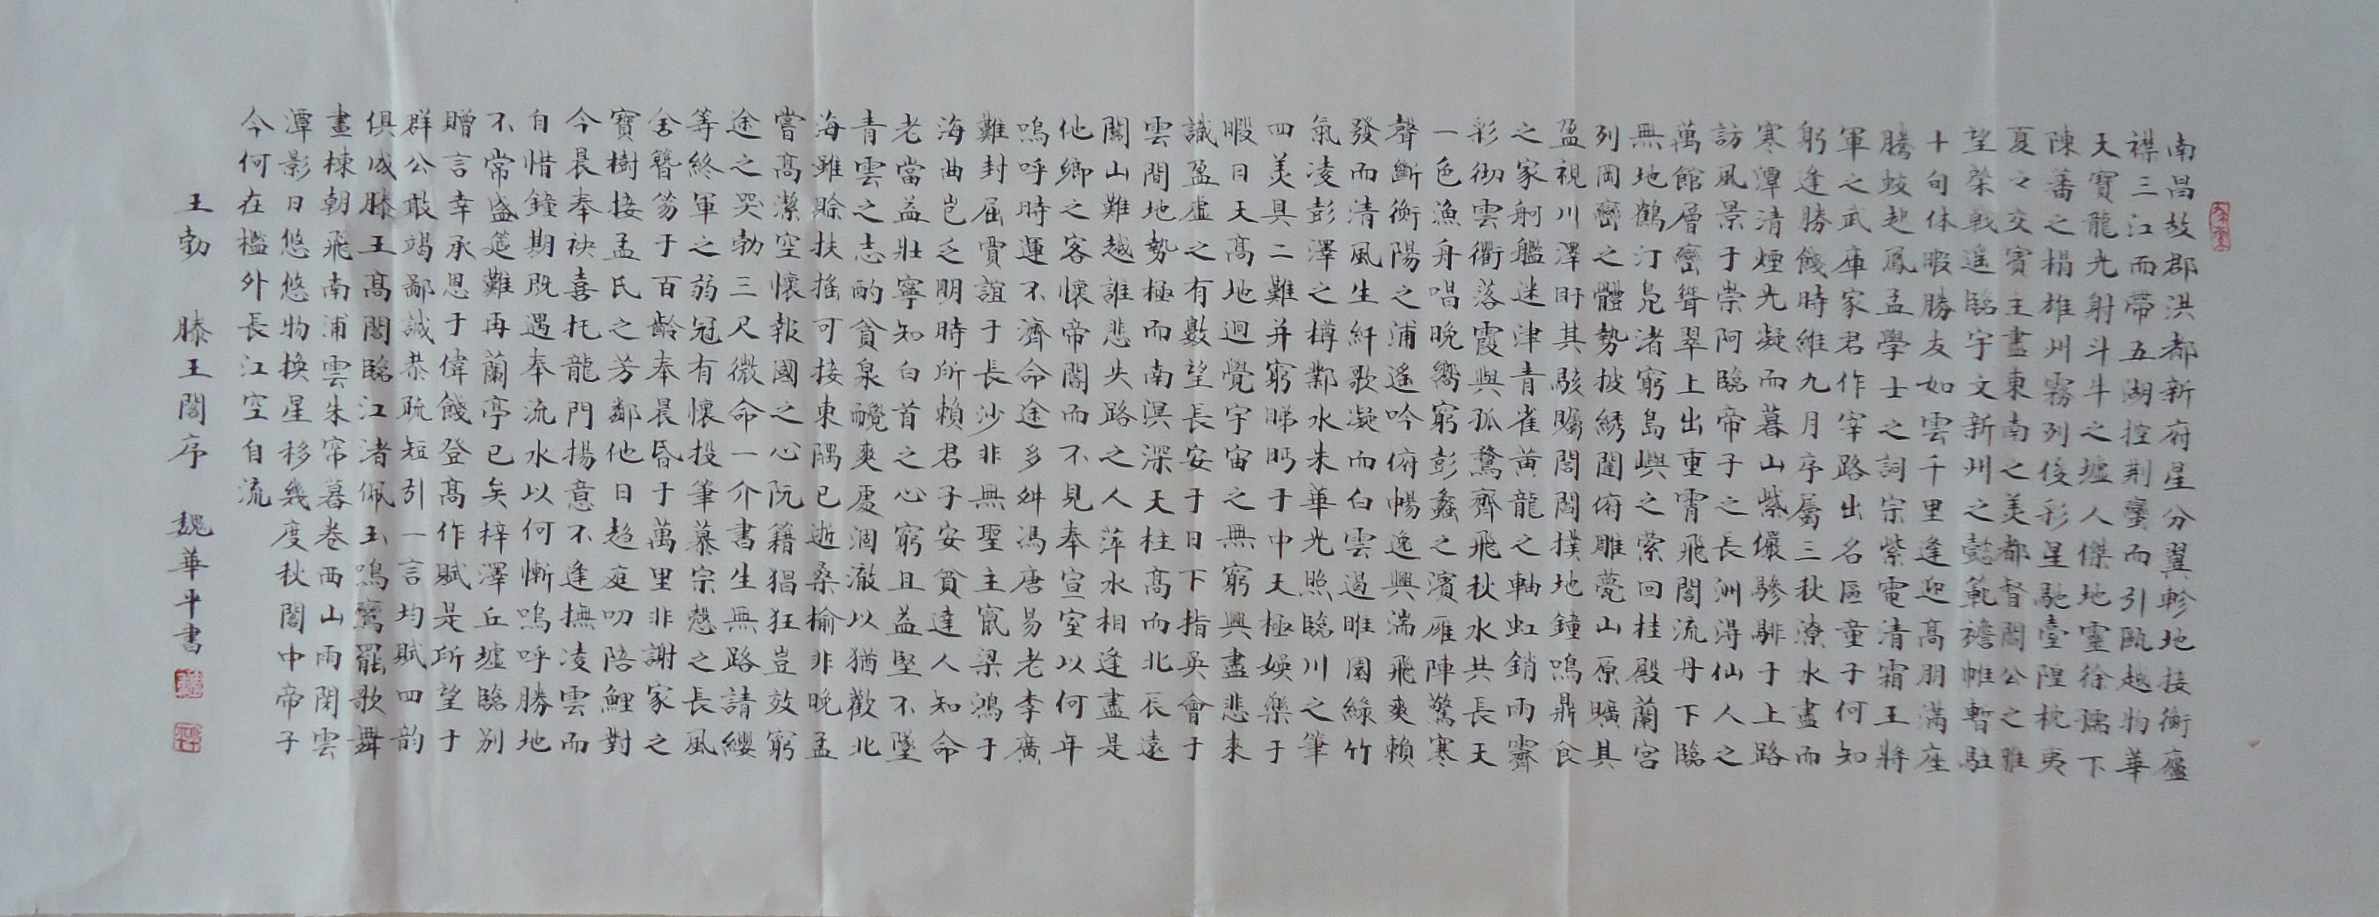 南昌故郡洪都新府星分翼軫地接衡廬
襟三江而帶五湖控荆蠻而引甌越物華
天寶龍光射斗牛之墟人傑地靈徐孺下
陳蕃之榻雄州霧列俊彩星馳臺隍枕夷
夏之交賓主盡東南之美都督閻公之雅
望棨戟遙臨宇文新州之懿範襜帷暫駐
十旬休暇勝友如雲千里逢迎高朋滿座
騰蛟起鳳孟學士之詞宗紫電清霜王將
軍之武庫家君作宰路出名區童子何知
躬逢勝餞時維九月序屬三秋潦水盡而
寒潭清煙光凝而暮山紫儼驂騑于上路
訪風景于崇阿臨帝子之長洲得仙人之
萬館層巒聳翠上出重霄飛閣流丹下臨
無地鶴汀鳧渚窮島嶼之縈回桂殿蘭宮
列岡巒之體勢披綉闥俯雕甍山原曠其
盈視川澤盱其駭矚閭閻撲地鐘鳴鼎食
之家舸艦迷津青雀黃龍之軸虹銷雨霽
彩彻雲衢落霞與孤鶩齊飛秋水共長天
一色漁舟唱晚響窮彭蠡之濱雁陣驚寒
聲斷衡陽之浦遙吟俯暢逸興湍飛爽籟
發而清風生纤歌凝而白雲遏睢園綠竹
氣凌彭澤之樽鄴水朱華光照臨川之筆
四美具二難并窮睇眄于中天極娛樂于
暇日天高地迥覺宇宙之無窮興盡悲來
識盈虛之有數望長安于日下指吳會于
雲間地勢極而南溟深天柱高而北辰遠
關山難越誰悲失路之人萍水相逢盡是
他鄉之客懷帝閽而不見奉宣室以何年
嗚呼時運不濟命途多舛馮唐易老李廣
難封屈賈誼于長沙非無聖主竄梁鴻于
海曲豈乏明時所賴君子安貧達人知命
老當益壯寧知白首之心窮且益堅不墜
青雲之志酌貪泉覺爽處涸澈以猶歡北
海雖賒扶搖可接東隅已逝桑榆非晚孟
嘗高潔空懷報國之心阮籍猖狂豈效窮
途之哭勃三尺微命一介書生無路請纓
等終軍之弱冠有懷投筆慕宗愨之長風
舍簪笏于百齡奉晨昏于萬里非謝家之
寶樹接孟氏之芳鄰他日趨庭叨陪鯉對
今晨奉袂喜托龍門揚意不逢撫凌雲而
自惜鐘期既遇奉流水以何慚嗚呼勝地
不常盛筵難再蘭亭已矣梓澤丘墟臨別
贈言幸承恩于偉餞登高作賦是所望于
群公敢竭鄙誠恭疏短引一言均賦四韵
俱成滕王高閣臨江渚佩玉鳴鸞罷歌舞
畫棟朝飛南浦雲朱帘暮卷西山雨閑雲
潭影日悠悠物換星移幾度秋閣中帝子
今何在檻外長江空自流
王勃 滕王閣序 魏華平書